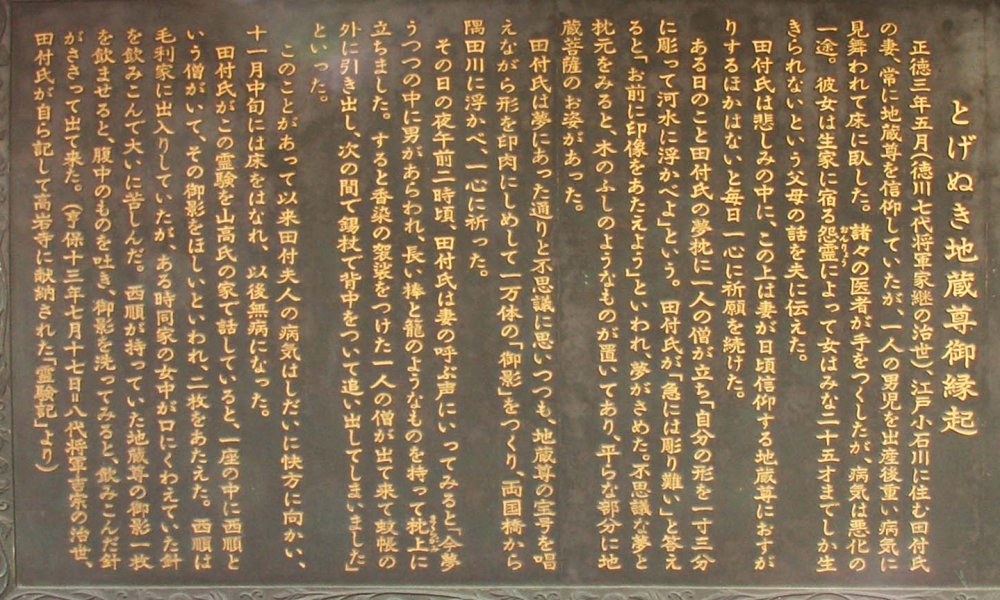 とげぬき地蔵尊御縁起
正徳三年五月(徳川七代将軍家継の治世)、江戸小石川に住む田付氏
の妻、常に地蔵尊を信仰していたが、一人の男児を出産後重い病気に
見舞われて床に臥した。諸々の医者が手をつくしたが、病気は悪化の
一途。彼女は生家に宿る怨霊によって女はみな二十五才までしか生
きられないという父母の話を夫に伝えた。
田付氏は悲しみの中に、この上は妻が日頃信仰する地蔵尊におすが
りするほかはないと毎日一心に祈願を続けた。
ある日のこと田付氏の夢枕に一人の僧が立ち「自分の形を一寸三分
に彫って河水に浮かべよ」という。田付氏が「急には彫り難い」と答え
ると「お前に印像をあたえよう」といわれ、夢がさめた。不思議な夢と
枕元をみると、木のふしのようなものが置いてあり、平らな部分に地
蔵菩薩のお姿があった。
田付氏は夢にあった通りと不思議に思いつつも、地蔵尊の宝号を唱
えながら形を印肉にしめして一万体の「御影」をつくり、両国橋から
隅田川に浮かべ、一心に祈った。
その日の夜午前二時頃、田付氏は妻の呼ぶ声にいってみると、「今夢
うつつの中に男があらわれ、長い棒と籠のようなものを持って枕上に
立ちました。すると香染の袈裟をつけた一人の僧が出て来て蚊帳の
外に引き出し、次の間で錫杖で背中をついて追い出してしまいました」
といった。
このことがあって以来田付夫人の病気はしだいに快方に向かい、
十一月中旬には床をはなれ、以後無病になった。
田付氏がこの霊験を山高氏の家で話していると、一座の中に西順と
いう僧がいて、その御影をほしいといわれ、二枚をあたえた。西順は
毛利家に出入りしていたが、ある時同家の女中が口にくわえていた針
を飲みこんで大いに苦しんだ。西順が持っていた地蔵尊の御影一枚
を飲ませると、腹中のものを吐き、御影を洗ってみると、飲みこんだ針
がささって出て来た。(享保十三年七月十七日=八代将軍吉宗の治世、
田付氏が自ら記して高岩寺に献納された「霊験記」より)